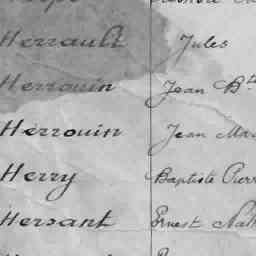 Herrault Jules
Herrouin Jean Bte
Herrouin Jean
Herry Baptiste
Hersant Ernest